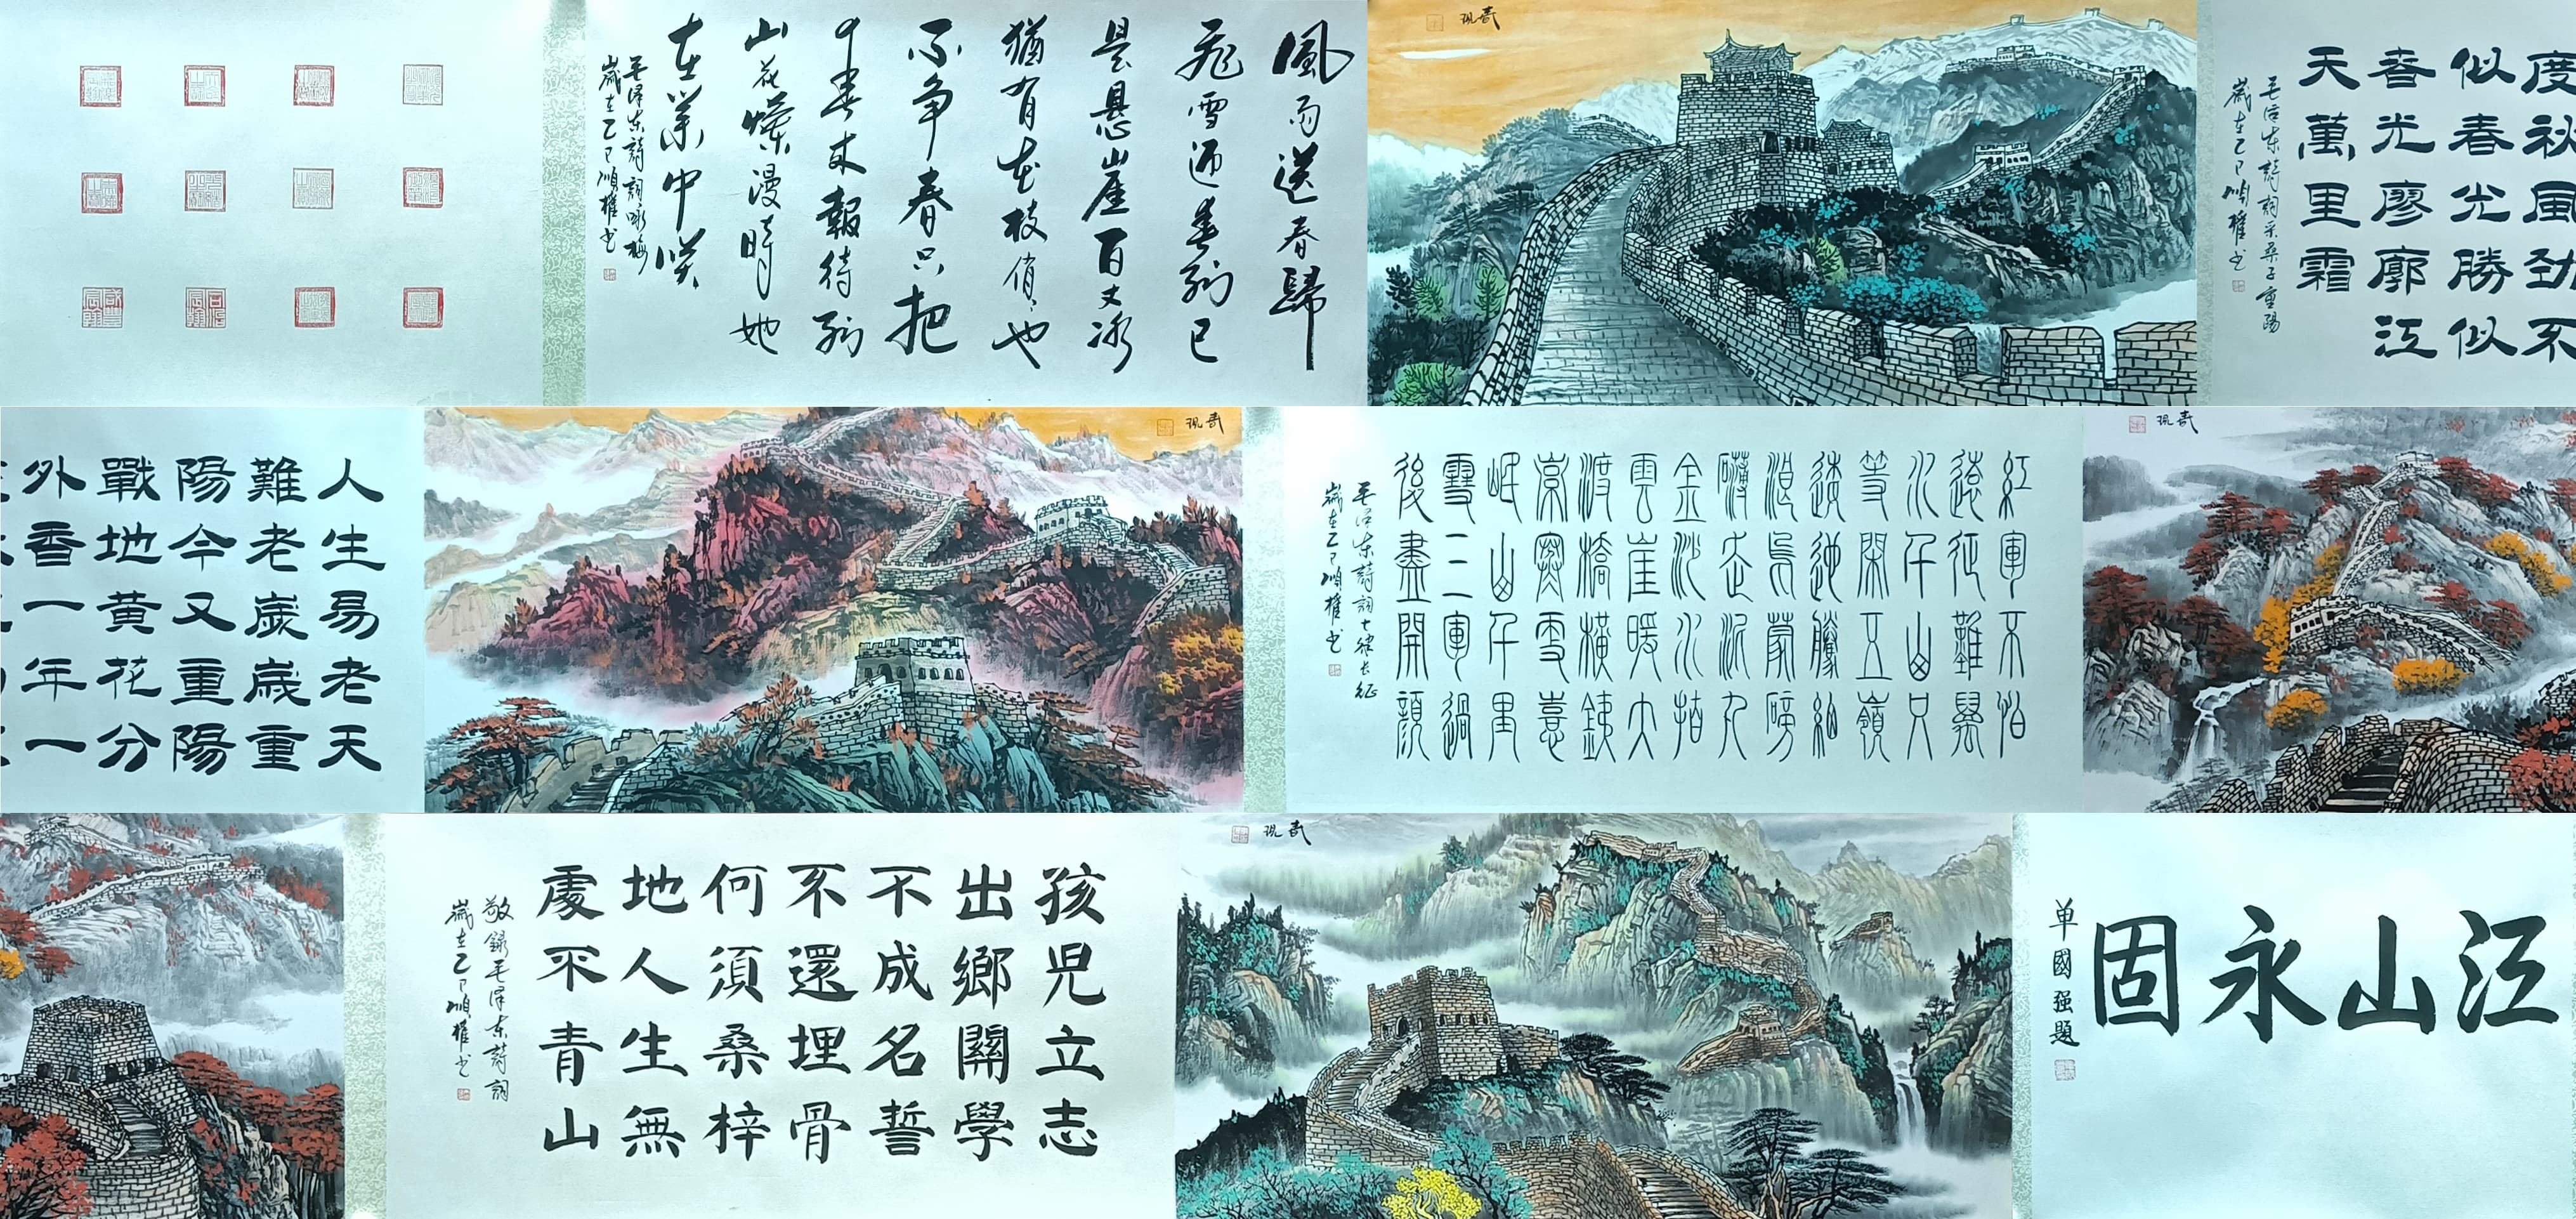 江山永固
单國强題
孩児立志
出鄉關學
不成名誓
不還埋骨
何須桑梓
地人生無
處不青山
敬錄毛澤东詩詞
歲在乙巳順權书
紅軍不怕
遠征難萬
水千山只
等閑五嶺
逶迤騰細
浪烏蒙磅
礴走泥丸
金沙水拍
雲崖暖大
渡橋橫鐵
索寒更喜
岷山千里
雪三軍過
後盡開顏
毛澤东詩詞七律长征
歲在乙巳順權书
人生易老天
難老歲歲重
陽今又重陽
戰地黄花分
外香一年一
度秋風劲不
似春光勝似
春光廖廓江
天萬里霜
毛澤东詩詞采桑子重陽
歲在乙巳順權书
風雨送春歸
飛雪迎春到已
是懸崖百丈冰
猶有花枝俏、也
不争春只把
个春來報待到
山花爛漫時她
在叢中咲
毛澤东詩詞咏梅
歲在乙巳順權书